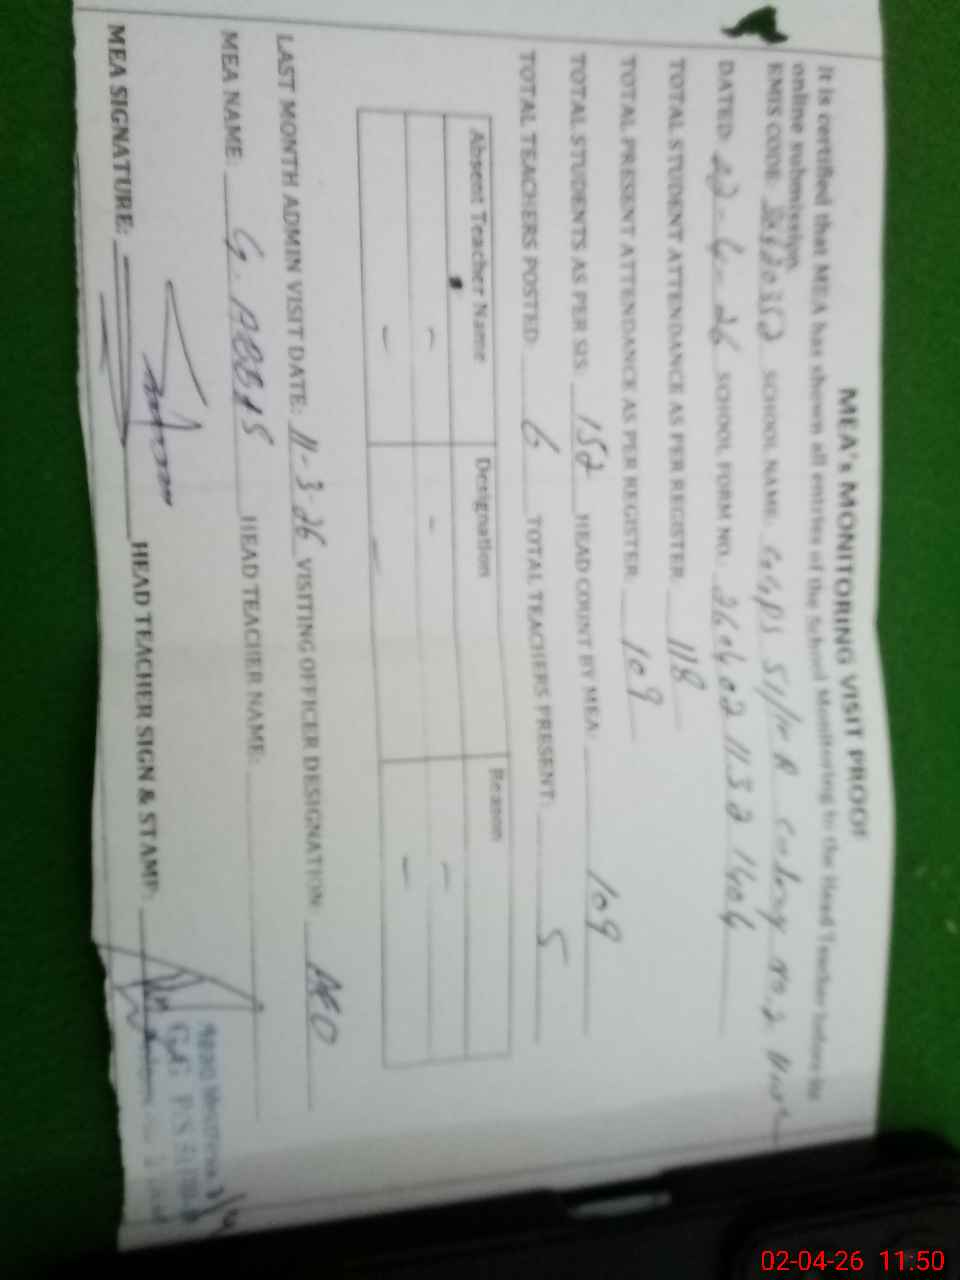 MEA's MONITORING VISIT PROOF
It is certified that MEA has shown all entries of the School Monitoring to the Head Teacher before its
online submission.
EMIS CODE: SCHOOL NAME: GGPS 51/ Colony No. 2
DATED: SCHOOL FORM NO.:
TOTAL STUDENT ATTENDANCE AS PER REGISTER: 118
TOTAL PRESENT ATTENDANCE AS PER REGISTER: 109
TOTAL STUDENTS AS PER SIS: 152 HEAD COUNT BY MEA: 109
TOTAL TEACHERS POSTED: 6 TOTAL TEACHERS PRESENT: 5
Absent Teacher Name Designation Reason
- - -
- - -
LAST MONTH ADMIN VISIT DATE: 11-3-26 VISITING OFFICER DESIGNATION: AEO
MEA NAME: G. ABBAS HEAD TEACHER NAME:
MEA SIGNATURE: HEAD TEACHER SIGN & STAMP:
Head Mistress
02-04-26 11:50